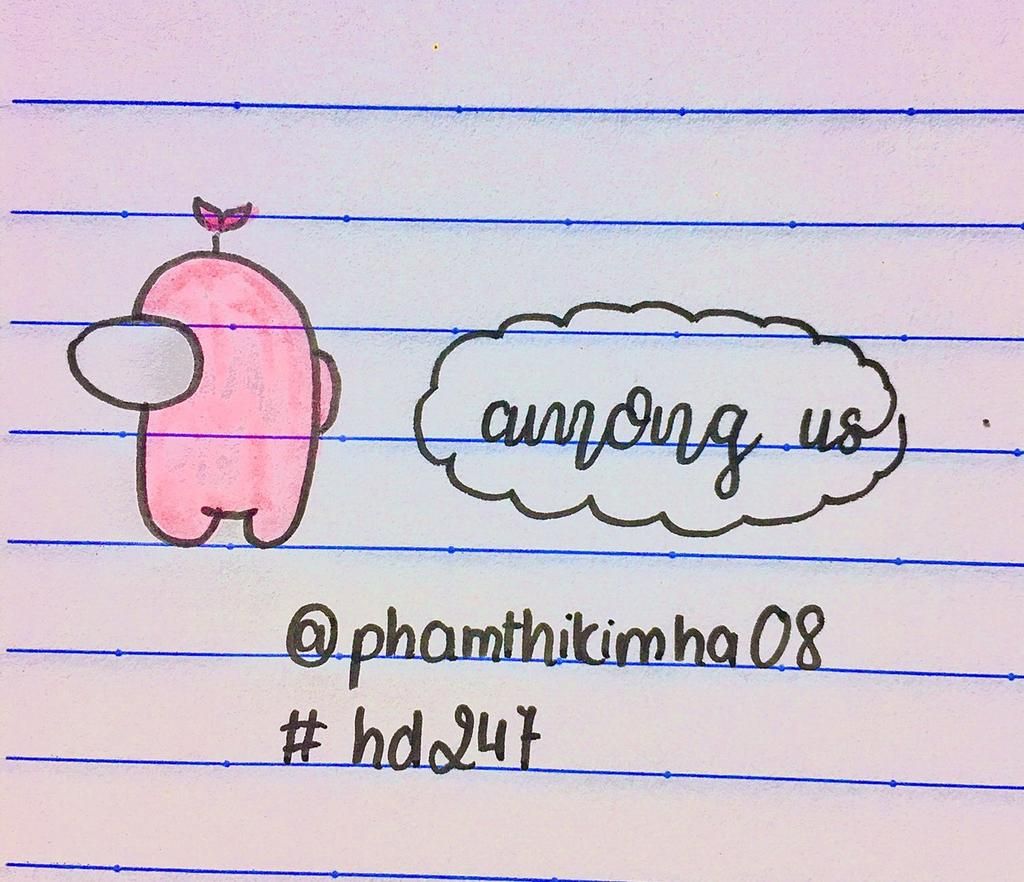 among us
@phamthikimha08
# hd247